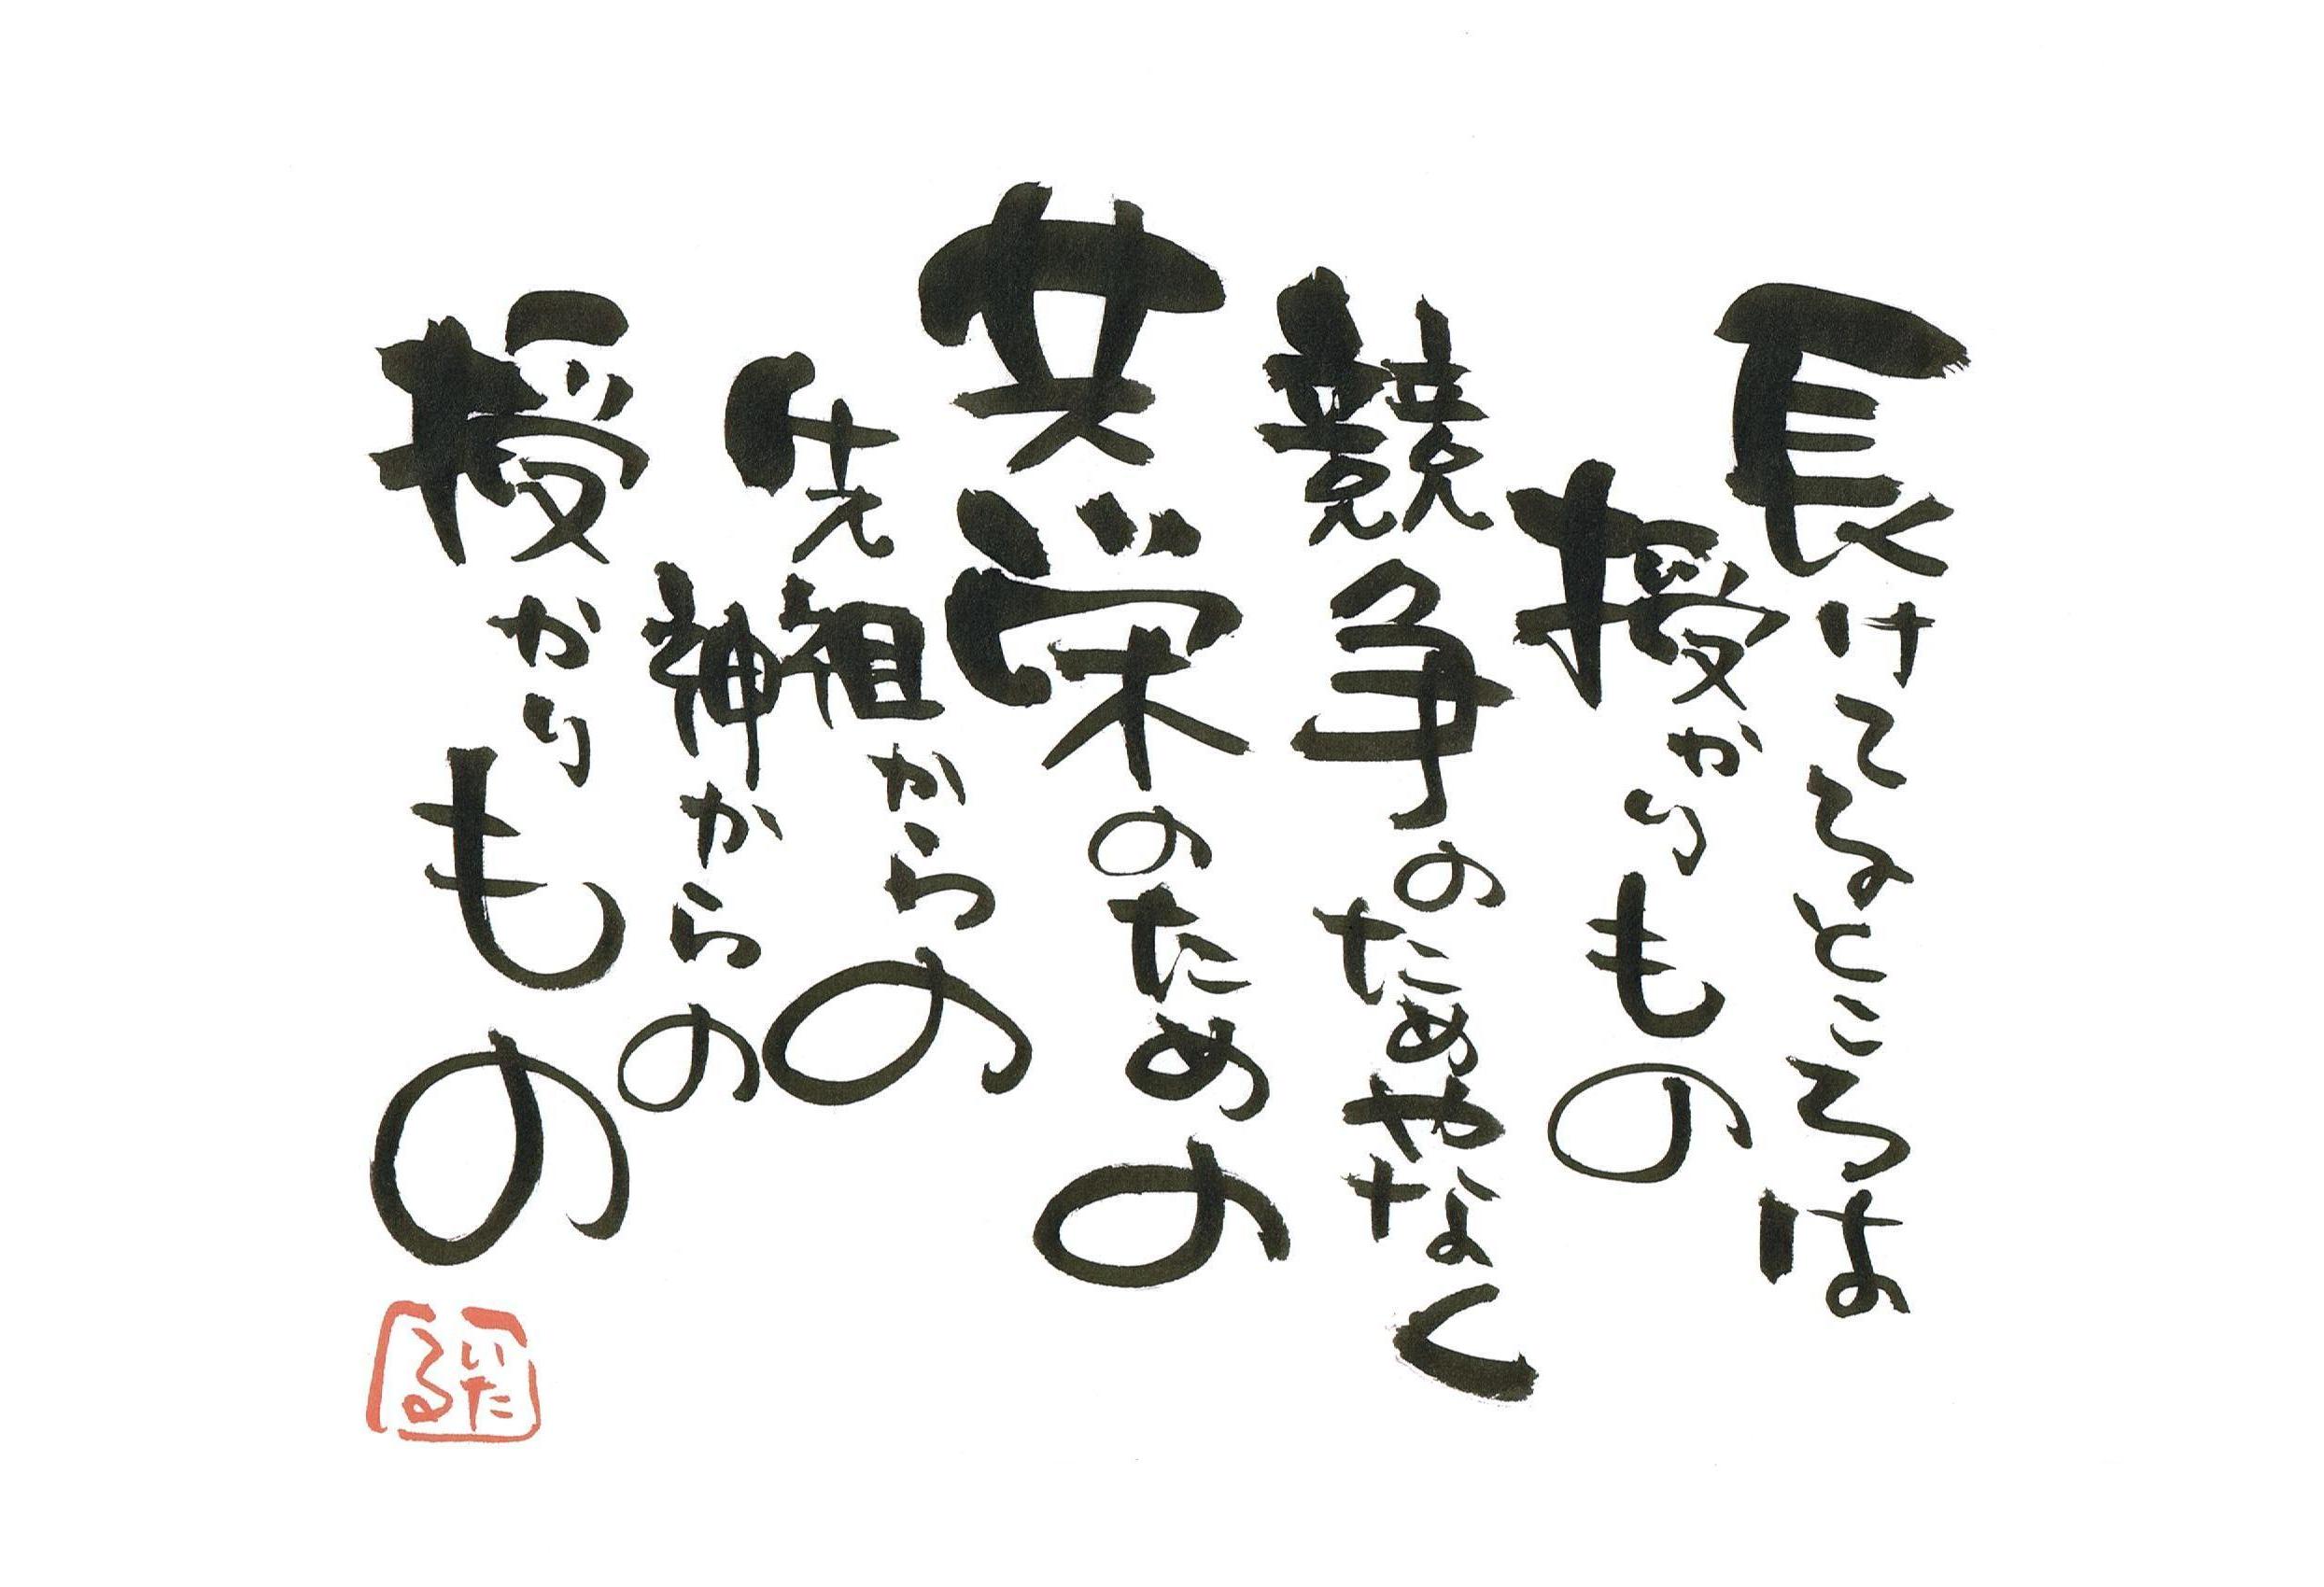 長けてるところは
授かりもの
競争のためやなく
共栄のための
先祖からの
神からの
授かりもの
いたる